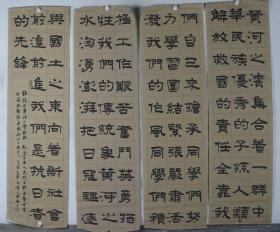 黄河之濱集合着一群中
華民族優秀的子孫人類
解放救國的責任全靠我
們自己來擔承同學們努
力學習團結緊張嚴肅活
潑我們的作風同學們積
極工作艱苦奮鬥英勇犧
牲我們的傳統象黄河之
水洶湧澎湃把日寇驅逐
與國土之東向着新社會
前進前進我們是抗日者
的先鋒